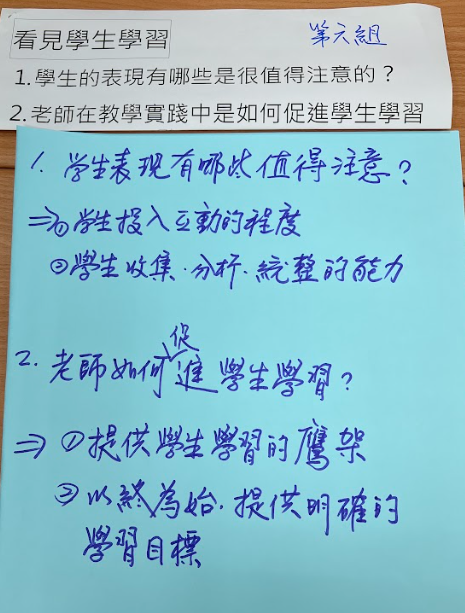 看見學生學習
第六組
1.學生的表現有哪些是很值得注意的？
2.老師在教學實踐中是如何促進學生學習
1. 學生表現有哪些值得注意？
⇒①學生投入互動的程度
②學生收集·分析·統整的能力
2. 老師如何促進學生學習？
⇒ ①提供學生學習的鷹架
②以終為始·提供明確的
學習目標